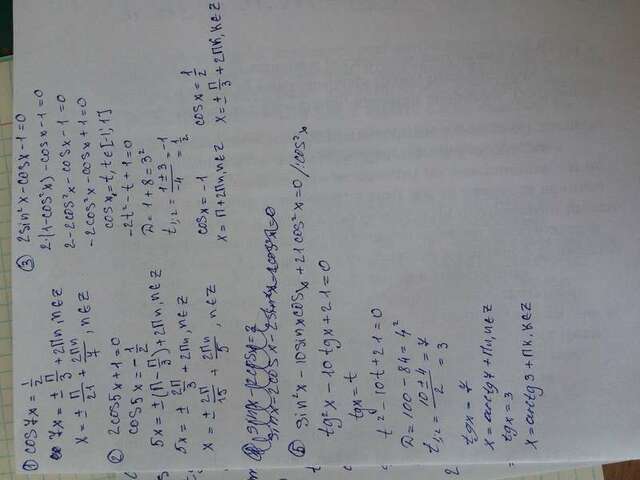 ① cos7x = 1/2
7x = ± П/3 + 2Пn, n∈Z
x = ± П/21 + 2Пn/7, n∈Z
② 2cos5x+1=0
cos5x = -1/2
5x = ±(П - П/3) + 2Пn, n∈Z
5x = ± 2П/3 + 2Пn, n∈Z
x = ± 2П/15 + 2Пn/5, n∈Z
③ 2sin²x - cosx - 1 = 0
2·(1-cos²x) - cosx - 1 = 0
2-2cos²x - cosx - 1 = 0
-2cos²x - cosx + 1 = 0
cosx = t, t∈[-1;1]
-2t² - t + 1 = 0
D = 1 + 8 = 3²
t₁,₂ = 1±3/-4 = -1
1/2
cosx = -1
x = П + 2Пn, n∈Z
cosx = 1/2
x = ± П/3 + 2Пk, k∈Z
⑤ sin²x - 10sinxcosx + 21cos²x = 0 /:cos²x
tg²x - 10tgx + 21 = 0
tgx = t
t² - 10t + 21 = 0
D = 100 - 84 = 4²
t₁,₂ = 10±4/2 = 7
= 3
tgx = 7
x = arctg7 + Пn, n∈Z
tgx = 3
x = arctg3 + Пk, k∈Z